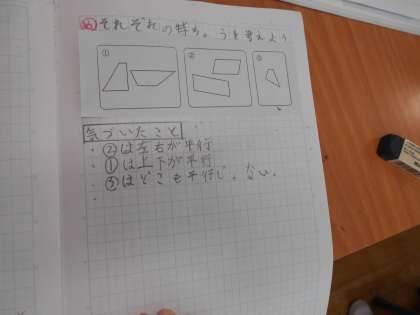 め それぞれの特ちょうを考えよう
① ② ③
気づいたこと
・②は左右が平行
・①は上下が平行
・③はどこも平行じゃない。